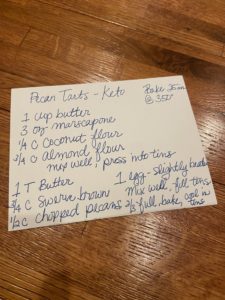 Pecan Tarts - Keto
Bake
@ 350
1 cup butter
3 oz marscapone
1/4 C Coconut flour
3/4 C almond flour
mix well! press into tins
1 T Butter
3/4 C Swerve brown
1/2 C chopped pecans
1 egg - slightly beaten
mix well, fill tins
2/3 full, bake, cool in
tins